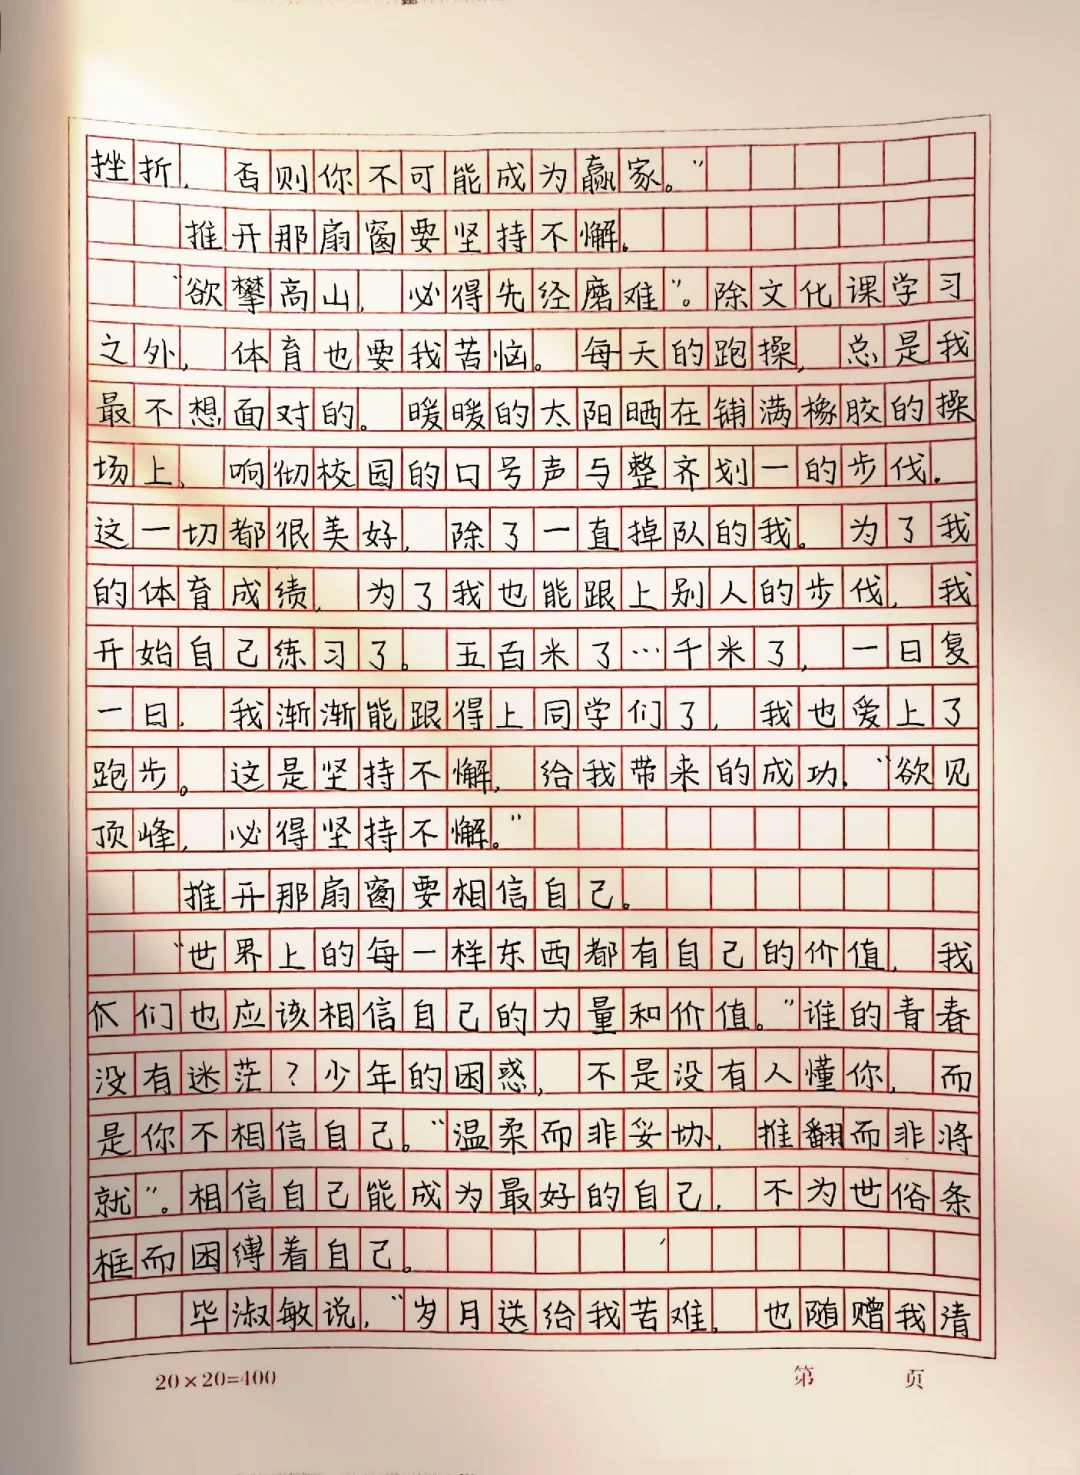 挫折，否则你不可能成为赢家。”
推开那扇窗要坚持不懈。
“欲攀高山，必得先经磨难”。除文化课学习
之外，体育也要我苦恼。每天的跑操，总是我
最不想面对的。暖暖的太阳晒在铺满橡胶的操
场上、响彻校园的口号声与整齐划一的步伐.
这一切都很美好，除了一直掉队的我。为了我
的体育成绩，为了我也能跟上别人的步伐，我
开始自己练习了。五百米了…千米了，一日复
一日，我渐渐能跟得上同学们了，我也爱上了
跑步。这是坚持不懈，给我带来的成功，“欲见
顶峰，必得坚持不懈。”
推开那扇窗要相信自己。
“世界上的每一样东西都有自己的价值，我
们也应该相信自己的力量和价值。”谁的青春
没有迷茫？少年的困惑，不是没有人懂你，而
是你不相信自己。“温柔而非妥协，推翻而非将
就”。相信自己能成为最好的自己，不为世俗条
框而困缚着自己。
毕淑敏说，“岁月送给我苦难，也随赠我清
20×20=400
第 页